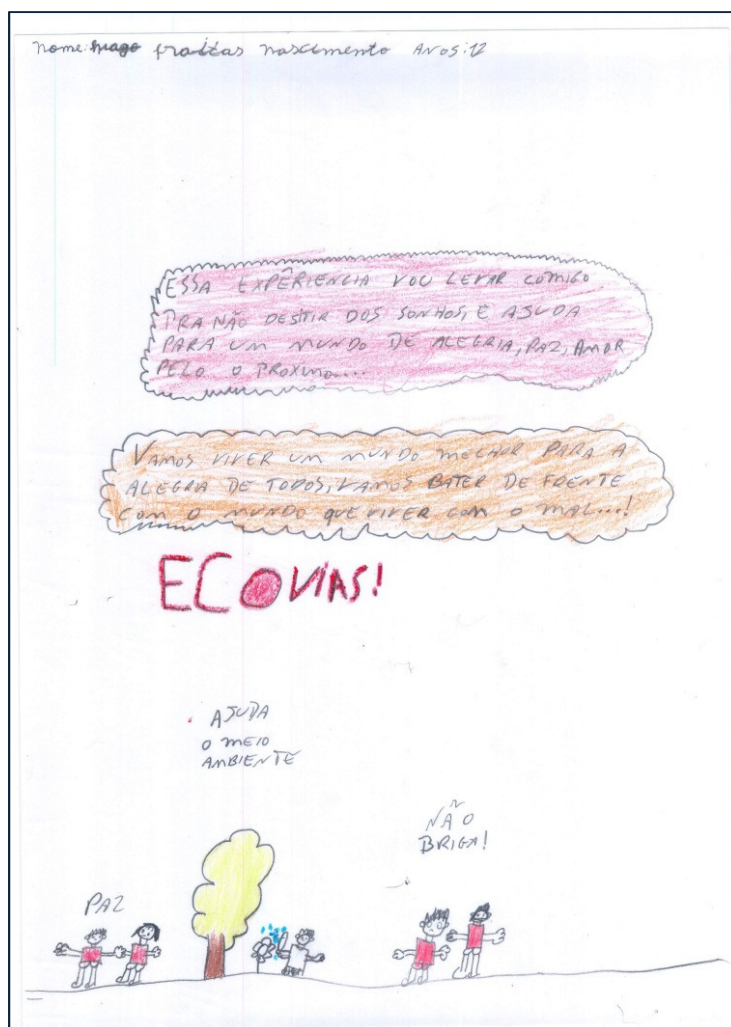 nome: hiago fraitas nascimento Anos: 12
ESSA EXPÊRIENCIA VOU LEVAR COMIGO
PRA NÃO DESITIR DOS SONHOS, E AJUDA
PARA UM MUNDO DE ALEGRIA, PAZ, AMOR
PELO O PROXIMO....
VAMOS VIVER UM MUNDO MELHOR PARA A
ALEGRA DE TODOS, VAMOS BATER DE FRENTE
COM O MUNDO QUE VIVER COM O MAL...!
ECOVIAS!
AJUDA
O MEIO
AMBIENTE
NÃO
BRIGA!
PAZ